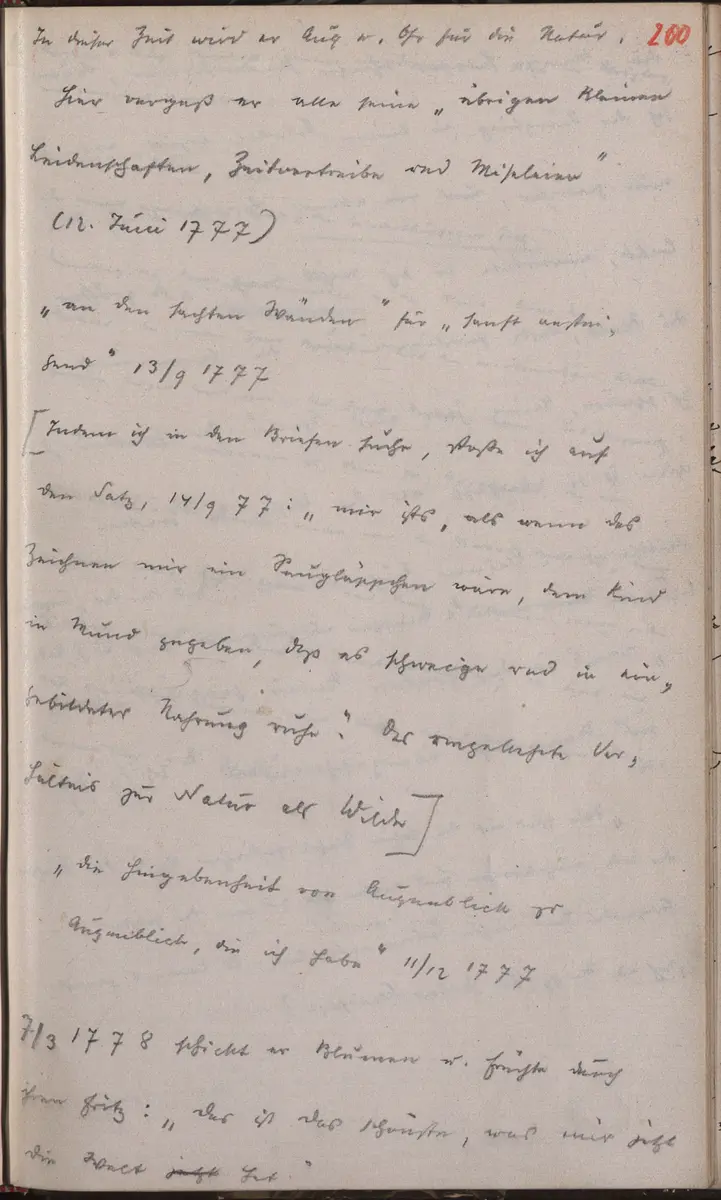 In dieser Zeit wird er Aug u. Ohr für die Natur. 200
Hier vergaß er alle seine „übrigen kleinen
Leidenschaften, Zeitvertreibe und Miseleien"
(12. Juni 1777)
„an den sachten Wänden" für „sanft anstei-
gend" 13/9 1777
[Indem ich in den Briefen suche, stoße ich auf
den Satz, 14/9 77: „mir ists, als wenn das
Zeichnen mir ein Saugläppchen wäre, dem Kind
in Mund gegeben, daß es schweige und in ein-
gebildeter Nahrung ruhe." Das umgekehrte Ver-
hältnis zur Natur als Wilde]
„die Hingebenheit von Augenblick zu
Augenblick, die ich habe" 11/12 1777
7/3 1778 schickt er Blumen u. Früchte durch
ihren Fritz: „das ist das schönste, was mir jetzt
die Welt jetzt hat."